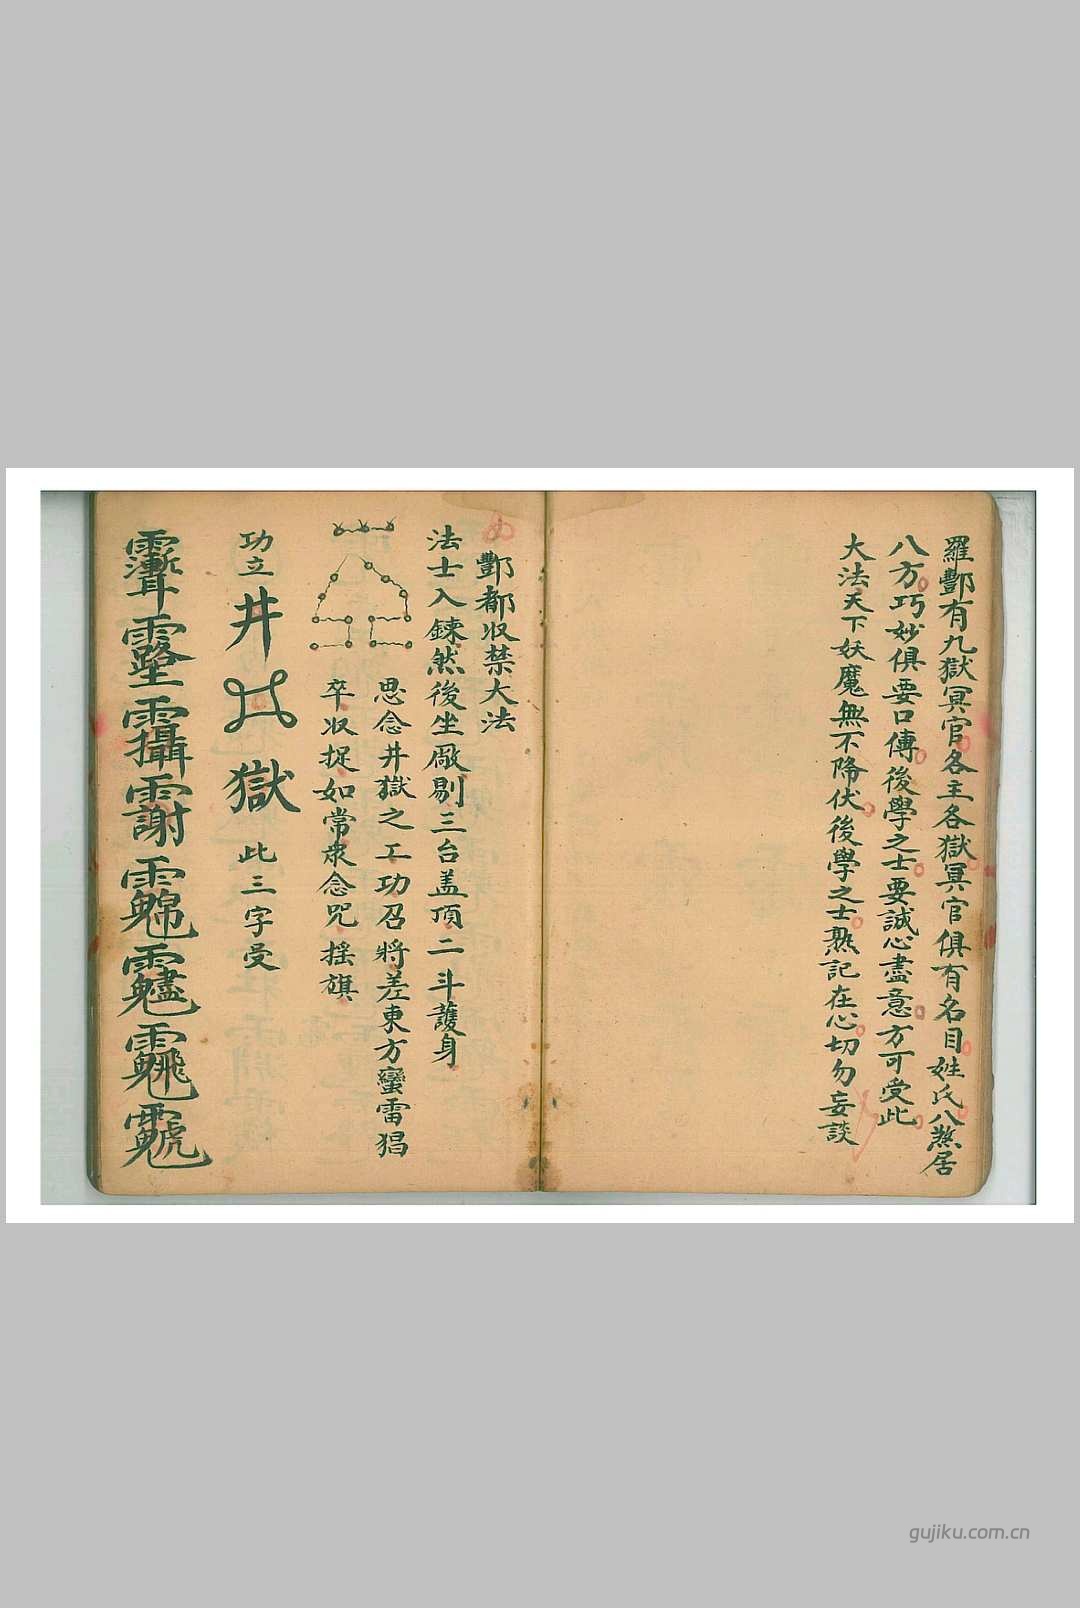 羅酆有九獄冥官各主各獄冥官俱有名目姓氏八煞居
八方巧妙俱要口傳後學之士要誠心盡意方可受此
大法天下妖魔無不降伏後學之士熟記在心切勿妄談
酆都収禁大法
法士入鍊然後坐厰剔三台盖頂二斗護身
思念井獄之工功召將差東方蠻雷猖
卒収捉如常衆念咒摇旗
功立井 獄此三字受
gujiku.com.cn